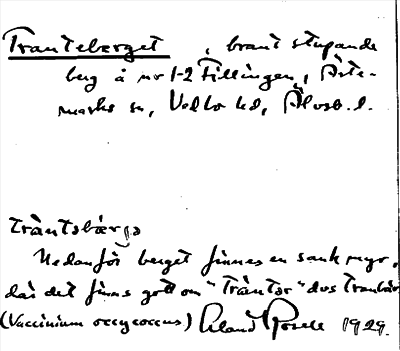 Tranteberget, brant stupande
berg å nv 1-2 Fillingen, Ärte-
marks sn, Vedbo hd, Älvsb. l.
Tràntəbærgə
Nedanför berget finnes en sank myr,
där det finns gott om "Tràntər" dvs Tranbär
(Vaccinium oxycoccus) Erland Rosell 1929.